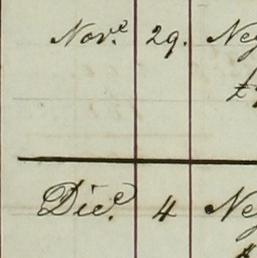 Nov.e 29. Ne
Dic.e 4 Ne